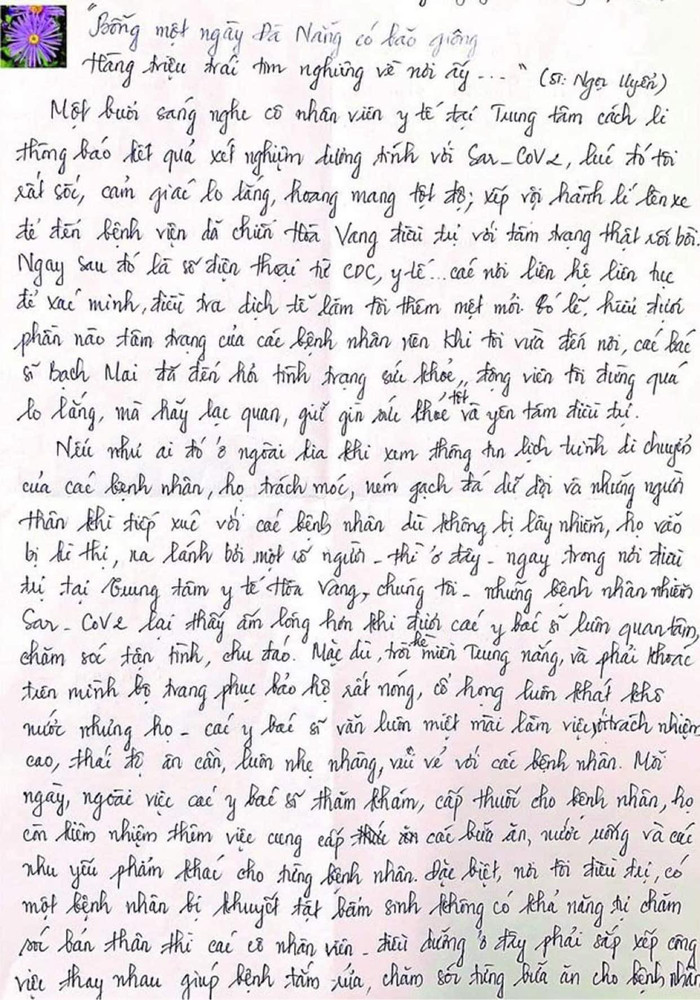 "Bỗng một ngày Đà Nẵng có bão giông
Hàng triệu trái tim nghiêng về nơi ấy ... " (st: Ngọc Uyên)
Một buổi sáng nghe cô nhân viên y tế tại Trung tâm cách li
thông báo kết quả xét nghiệm dương tính với Sar-CoV2, lúc đó tôi
rất sốc, cảm giác lo lắng, hoang mang tột độ; xếp vội hành lí lên xe
để đến bệnh viện dã chiến Hòa Vang điều trị với tâm trạng thật rối bời.
Ngay sau đó là số điện thoại từ CDC, y tế... các nơi liên hệ liên tục
để xác minh, điều tra dịch tễ làm tôi thêm mệt mỏi. Có lẽ, hiểu được
phần nào tâm trạng của các bệnh nhân nên khi tôi vừa đến nơi, các bác
sĩ Bạch Mai đã đến hỏi tình trạng sức khỏe, động viên tôi đừng quá
lo lắng, mà hãy lạc quan, giữ gìn sức khỏe tốt và yên tâm điều trị.
Nếu như ai đó ở ngoài kia khi xem thông tin lịch trình di chuyển
của các bệnh nhân, họ trách móc, ném gạch đá dữ dội và những người
thân khi tiếp xúc với các bệnh nhân dù không bị lây nhiễm, họ vẫn
bị kì thị, xa lánh bởi một số người - thì ở đây - ngay trong nơi điều
trị tại Trung tâm y tế Hòa Vang, chúng tôi - những bệnh nhân nhiễm
Sar-CoV2 lại thấy ấm lòng hơn khi được các y bác sĩ luôn quan tâm,
chăm sóc tận tình, chu đáo. Mặc dù, trời hè miền Trung nắng, và phải khoác
trên mình bộ trang phục bảo hộ rất nóng, cổ họng luôn khát khô
nước nhưng họ - các y bác sĩ vẫn luôn miệt mài làm việc với trách nhiệm
cao, thái độ ân cần, luôn nhẹ nhàng, vui vẻ với các bệnh nhân. Mỗi
ngày, ngoài việc các y bác sĩ thăm khám, cấp thuốc cho bệnh nhân, họ
còn kiêm nhiệm thêm việc cung cấp thức ăn các bữa ăn, nước uống và các
nhu yếu phẩm khác cho từng bệnh nhân. Đặc biệt, nơi tôi điều trị, có
một bệnh nhân bị khuyết tật bẩm sinh không có khả năng tự chăm
sóc bản thân thì các cô nhân viên - điều dưỡng ở đây phải sắp xếp công
việc thay nhau giúp bệnh tắm rửa, chăm sóc từng bữa ăn cho bệnh nhân